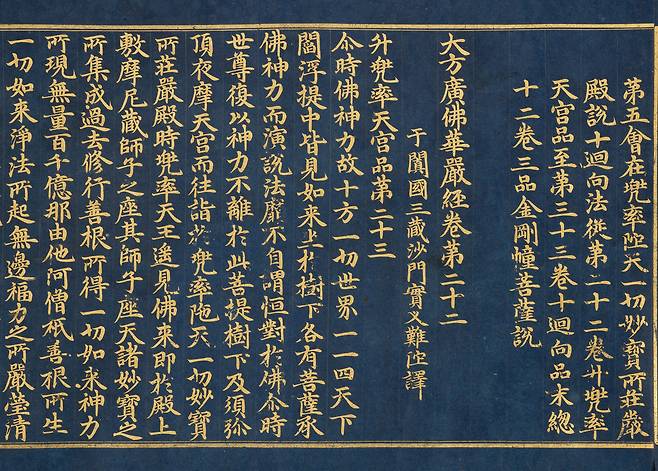 第五會在兜率陁天一切妙寶所莊嚴
殿說十迴向法從第二十二卷升兜率
天宮品至第三十三卷十迴向品末總
十二卷三品金剛幢菩薩說
大方廣佛華嚴経卷第二十二
于闐國三藏沙門實叉難陁譯
升兜率天宮品第二十三
尒時佛神力故十方一切世界一一四天下
閻浮提中皆見如来坐於樹下各有菩薩承
佛神力而演說法靡不自謂恒對於佛尒時
世尊復以神力不離於此菩提樹下及須弥
頂夜摩天宮而往詣於兜率陁天一切妙寶
所莊嚴殿時兜率天王遥見佛来即於殿上
敷摩尼藏師子之座其師子座天諸妙寶之
所集成過去修行善根所得一切如来神力
所現無量百千億那由他阿僧祇善根所生
一切如来淨法所起無邊福力之所嚴瑩清